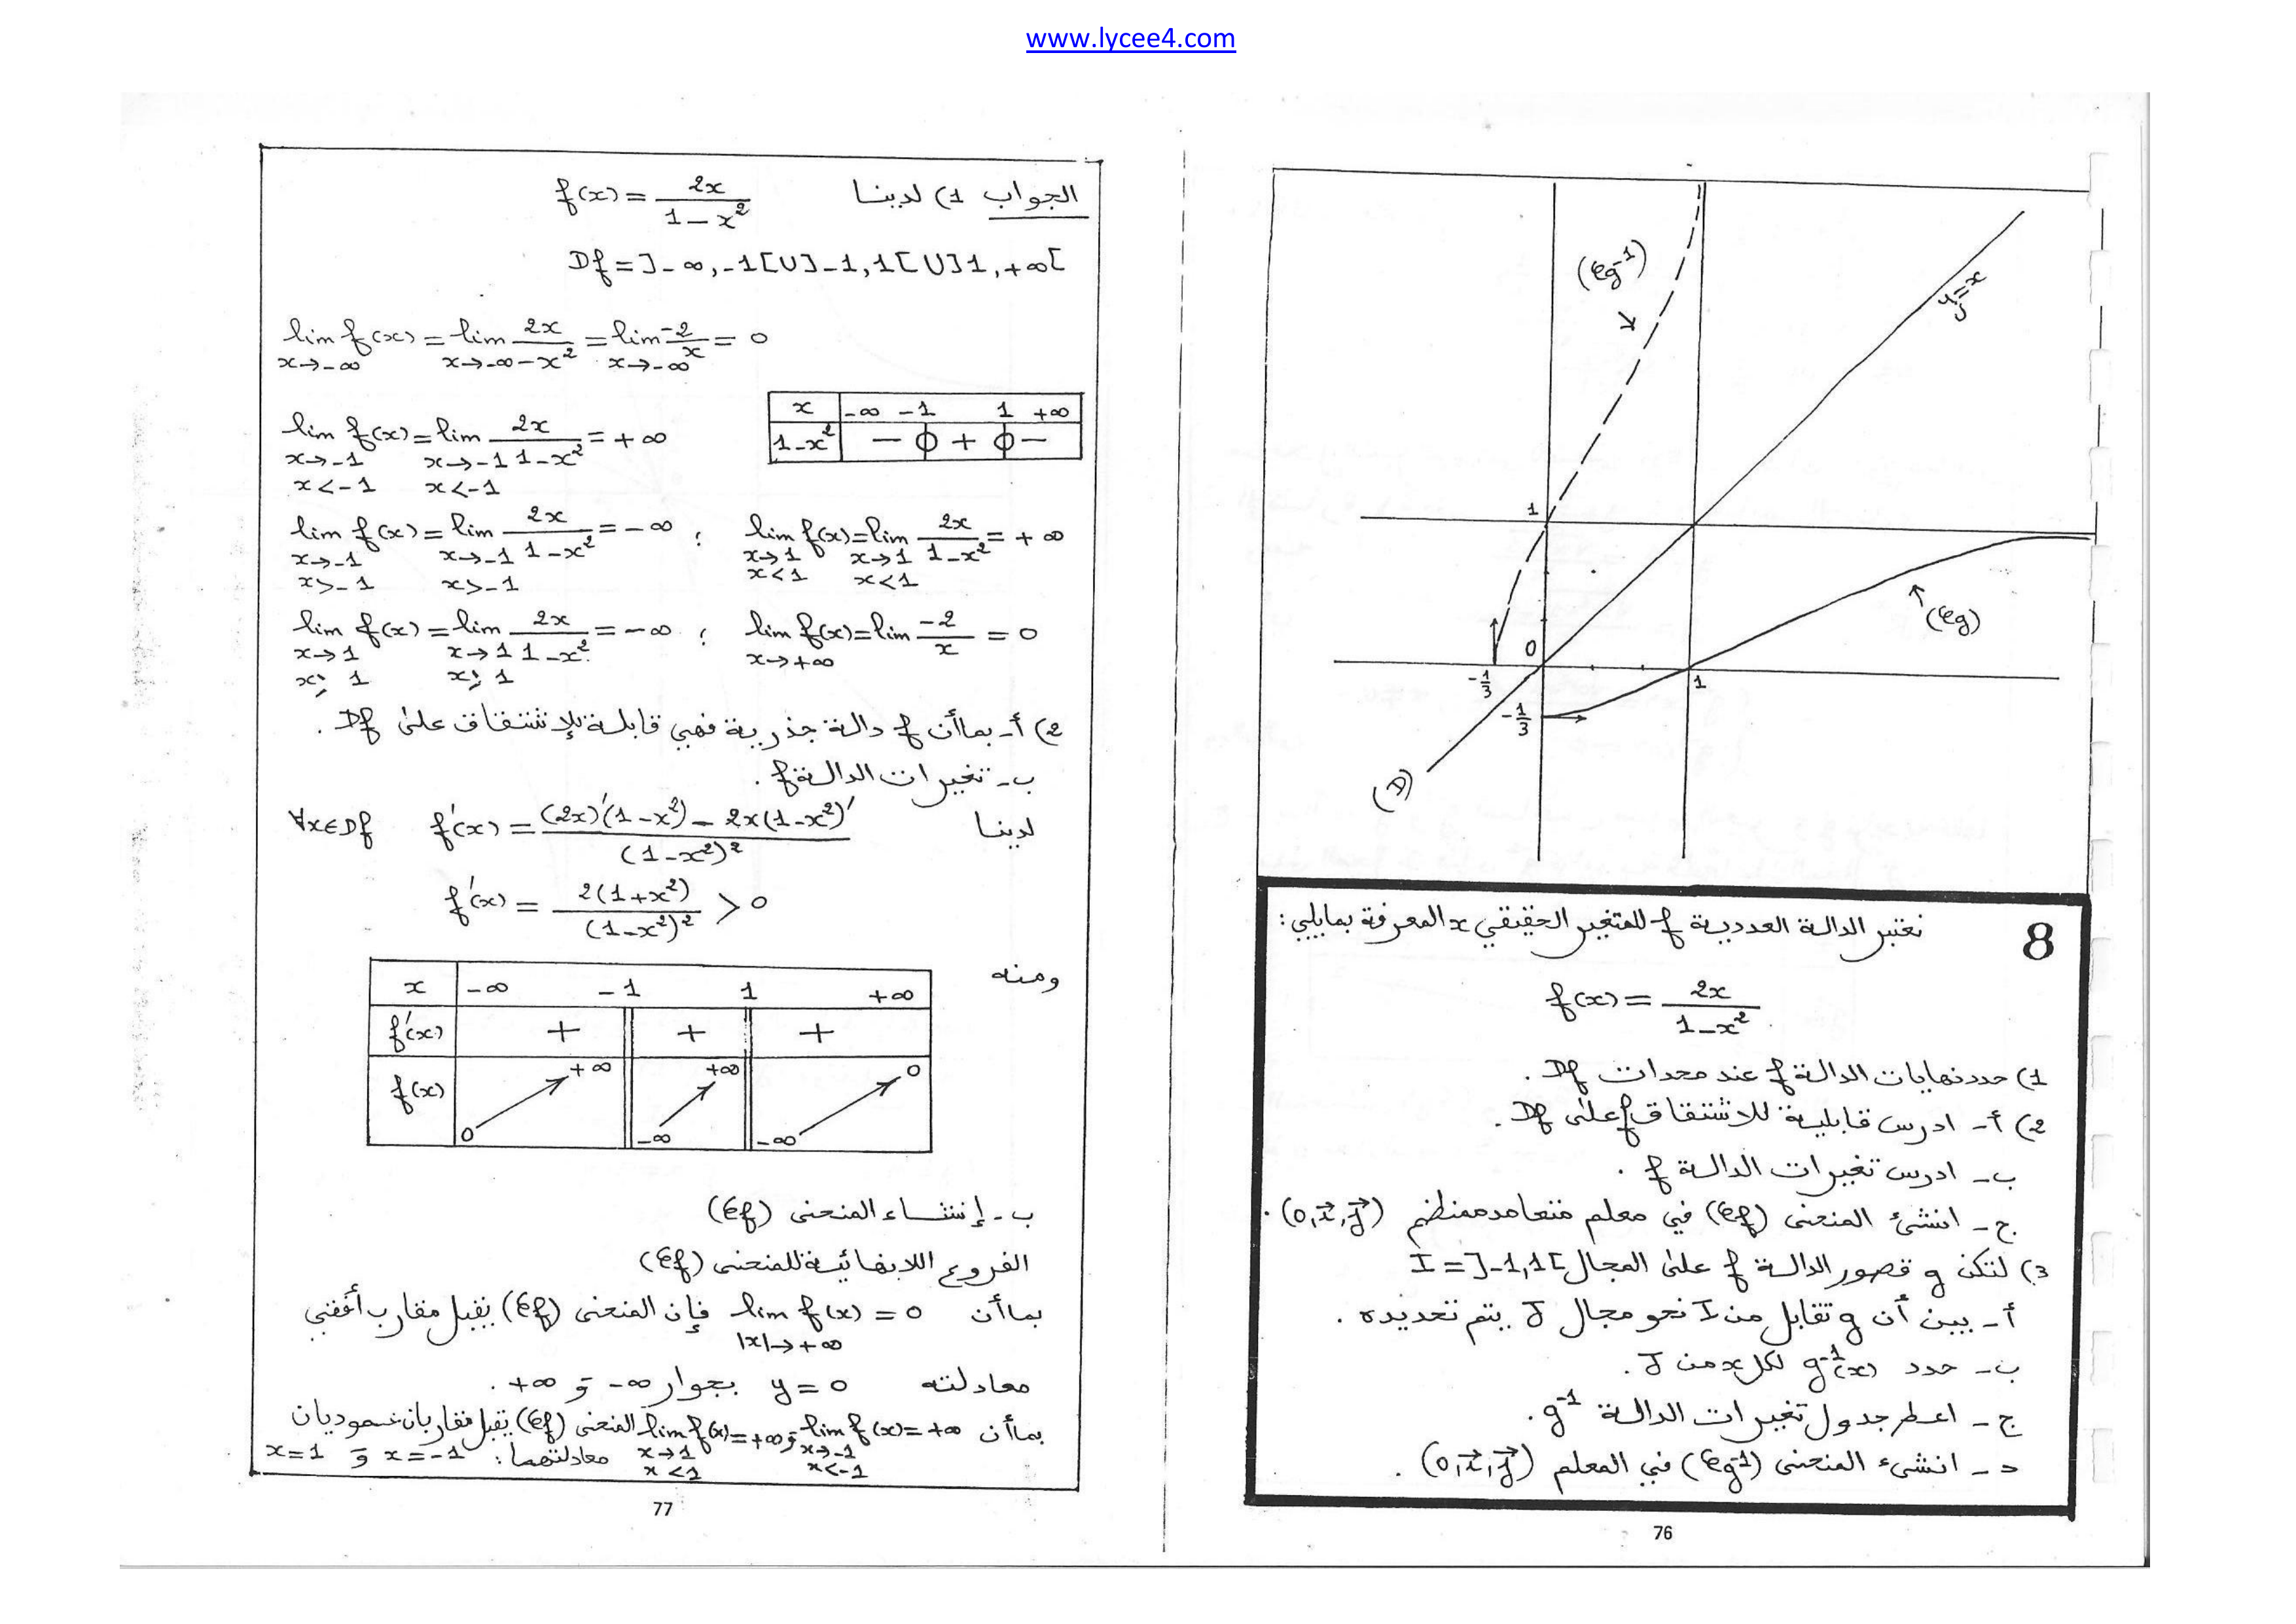 www.lycee4.com
(𝒞g⁻¹)
y=x
1
(𝒞g)
0
-1/3
1
-1/3
(D)
8 نعتبر الدالة العددية f للمتغير الحقيقي x المعرفة بمايلي:
f(x) = 2x / (1-x²)
1) حدد نهايات الدالة f عند محدات Df.
2) أ- ادرس قابلية للاشتقاق f على Df.
ب- ادرس تغيرات الدالة f.
ج- انشئ المنحنى (𝒞f) في معلم متعامد ممنظم (o,i⃗,j⃗).
3) لتكن g قصور الدالة f على المجال I = ]-1,1[
أ- بين أن g تقابل من I نحو مجال J يتم تحديده.
ب- حدد g⁻¹(x) لكل x من J.
ج- اعط جدول تغيرات الدالة g⁻¹.
د- انشىء المنحنى (𝒞g⁻¹) في المعلم (o,i⃗,j⃗).
76
الجواب 1) لدينا f(x) = 2x / (1-x²)
Df = ]-∞,-1[U]-1,1[U]1,+∞[
lim f(x) = lim 2x/-x² = lim -2/x = 0
x→-∞ x→-∞ x→-∞
x -∞ -1 1 +∞
1-x² - 0 + 0 -
lim f(x) = lim 2x/(1-x²) = +∞
x→-1 x→-1
x<-1 x<-1
lim f(x) = lim 2x/(1-x²) = -∞ ; lim f(x) = lim 2x/(1-x²) = +∞
x→-1 x→-1 x→1 x→1
x>-1 x>-1 x<1 x<1
lim f(x) = lim 2x/(1-x²) = -∞ ; lim f(x) = lim -2/x = 0
x→1 x→1 x→+∞
x> 1 x> 1
2) أ- بما أن f دالة جذرية فهي قابلة للإشتقاق على Df.
ب- تغيرات الدالة f.
لدينا f'(x) = ((2x)'(1-x²) - 2x(1-x²)') / (1-x²)² ∀x∈Df
f'(x) = 2(1+x²) / (1-x²)² > 0
ومنه
x -∞ -1 1 +∞
f'(x) + + +
f(x) 0 +∞ -∞ +∞ -∞ 0
ب- إنشاء المنحنى (𝒞f)
الفروع اللانهائية للمنحنى (𝒞f)
بما أن lim f(x) = 0 فإن المنحنى (𝒞f) يقبل مقارب أفقي
|x|→+∞
معادلته y=0 بجوار -∞ و +∞.
بما أن lim f(x)=+∞ و lim f(x)=+∞ المنحنى (𝒞f) يقبل مقاربان عموديان
x→-1 x→1 معادلتهما: x=-1 و x=1
x<-1 x<1
77